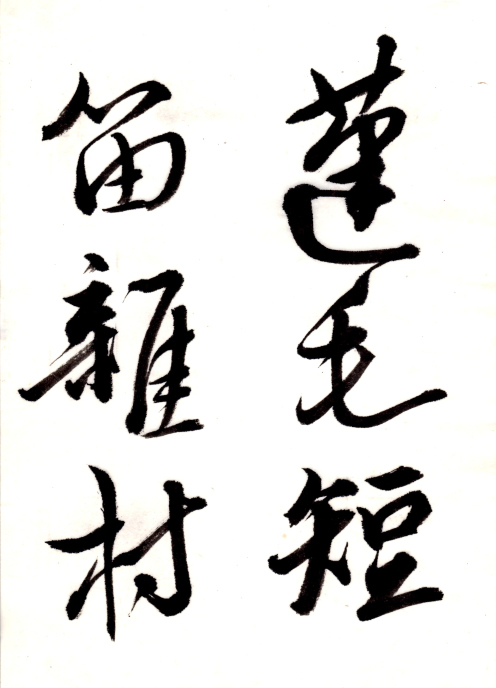 蓬毛短
笛雜村